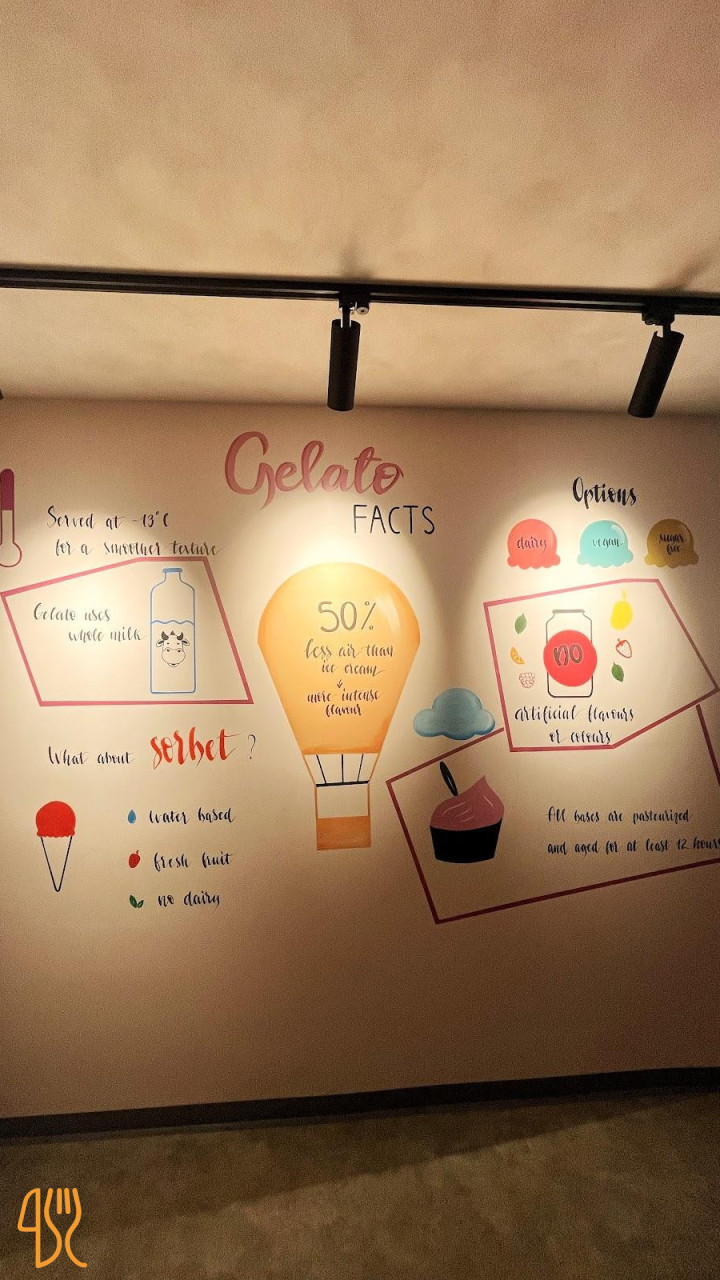 Gelato
FACTS
Served at -13°C
for a smoother texture
Gelato uses
whole milk
50%
less air than
ice cream
more intense
flavour
Options
dairy
vegan
sugar
free
no
artificial flavours
or colours
What about sorbet?
water based
fresh fruit
no dairy
All bases are pasteurized
and aged for at least 12 hours